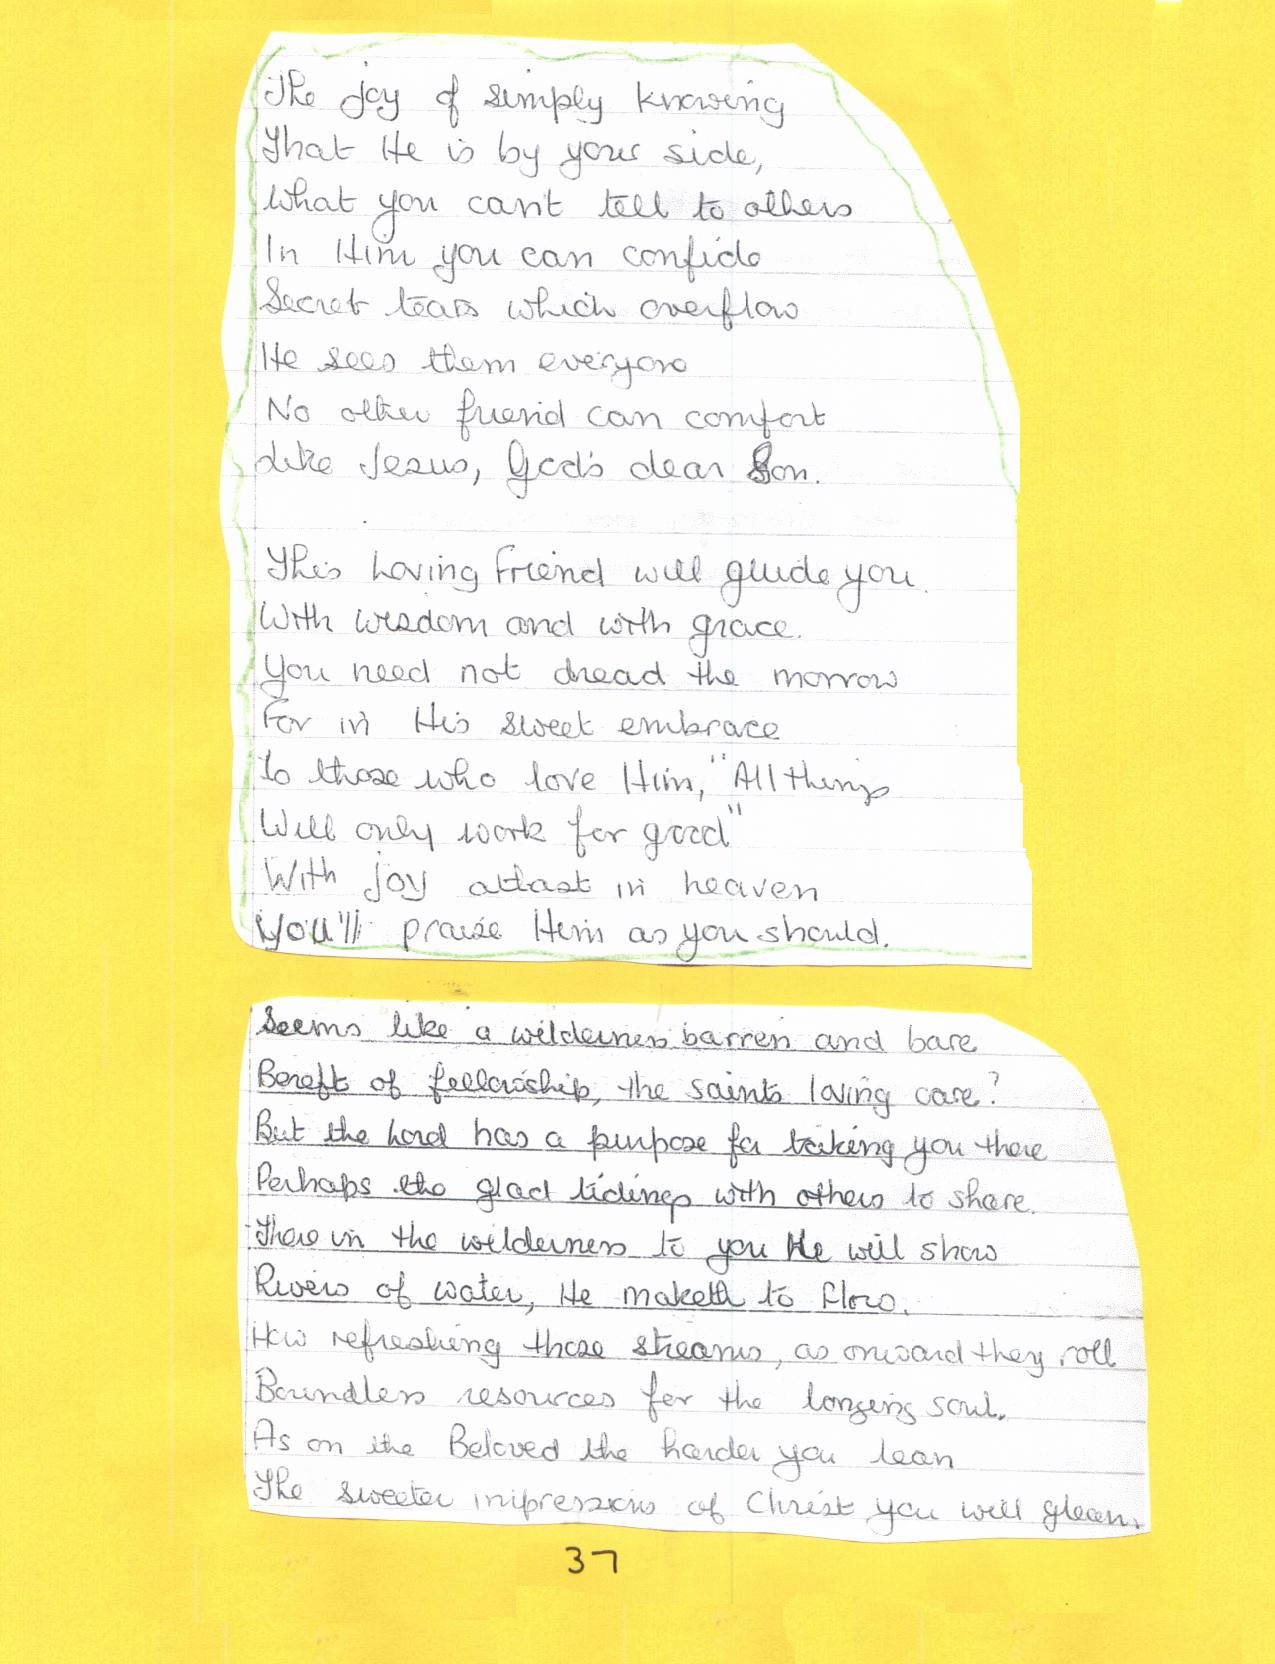 The joy of simply knowing
That He is by your side,
What you can't tell to others
In Him you can confide
Secret tears which overflow
He sees them everyone
No other friend can comfort
Like Jesus, God's dear Son.
This loving friend will guide you.
With wisdom and with grace.
You need not dread the morrow
For in His sweet embrace
To those who love Him, "All things
Will only work for good"
With joy atlast in heaven
You'll praise Him as you should.
Seems like a wilderness barren and bare
Bereft of fellowship, the saints loving care?
But the Lord has a purpose for taking you there
Perhaps the glad tidings with others to share.
There in the wilderness to you He will show
Rivers of water, He maketh to flow.
How refreshing those streams, as onward they roll
Boundless resources for the longing soul.
As on the Beloved the harder you lean
The sweeter impressions of Christ you will glean.
37